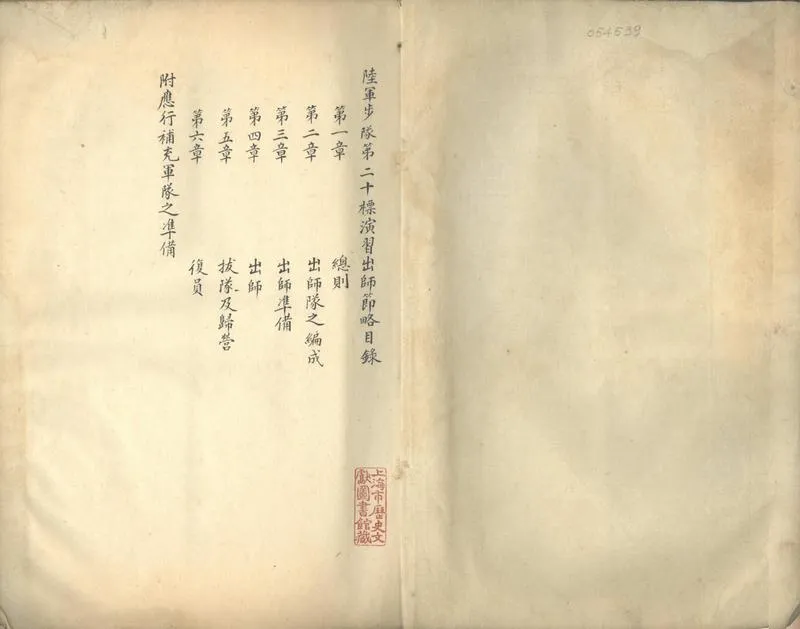 054539
陸軍步隊第二十標演習出師節略目錄
第一章 總則
第二章 出師隊之編成
第三章 出師準備
第四章 出師
第五章 拔隊及歸營
第六章 復員
附應行補充軍隊之準備
上海市歷史文
獻圖書館藏